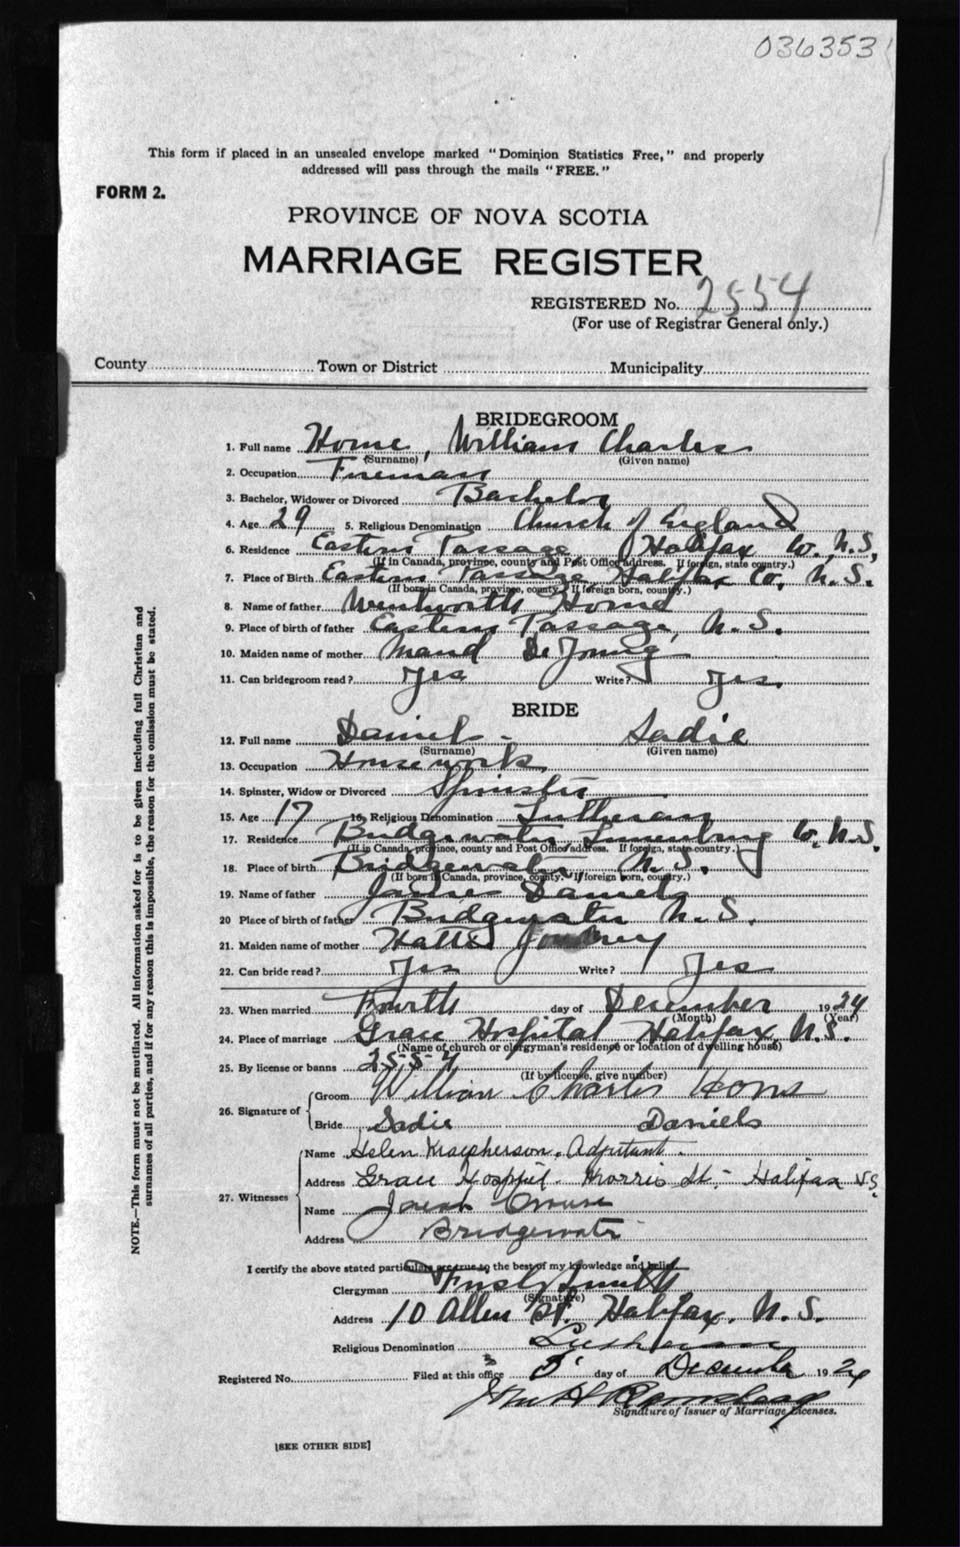 036353
This form if placed in an unsealed envelope marked "Dominion Statistics Free," and properly
addressed will pass through the mails "FREE."
FORM 2.
PROVINCE OF NOVA SCOTIA
MARRIAGE REGISTER
REGISTERED No. 2554
(For use of Registrar General only.)
County Town or District Municipality
BRIDEGROOM
1. Full name Horne, William Charles
(Surname) (Given name)
2. Occupation Fireman
3. Bachelor, Widower or Divorced Bachelor
4. Age 29 5. Religious Denomination Church of England
6. Residence Eastern Passage, Halifax Co., N.S.,
(If in Canada, province, county and Post Office address. If foreign, state country.)
7. Place of Birth Eastern Passage, Halifax Co., N.S.
(If born in Canada, province, county. If foreign born, country.)
8. Name of father Wentworth Horne
9. Place of birth of father Eastern Passage, N.S.
10. Maiden name of mother Maud DeYoung
11. Can bridegroom read? Yes Write? Yes.
BRIDE
12. Full name Daniels - Sadie
(Surname) (Given name)
13. Occupation Housework
14. Spinster, Widow or Divorced Spinster
15. Age 17 16. Religious Denomination Lutheran
17. Residence Bridgewater, Lunenburg Co. N.S.
(If in Canada, province, county and Post Office address. If foreign, state country.)
18. Place of birth Bridgewater N.S.
(If born in Canada, province, county. If foreign born, country.)
19. Name of father James Daniels
20 Place of birth of father Bridgewater N.S.
21. Maiden name of mother Hattie
22. Can bride read? Yes Write? Yes
23. When married Fourth day of December 1924
(Month) (Year)
24. Place of marriage Grace Hospital Halifax, N.S.
(Name of church or clergyman's residence or location of dwelling house)
25. By license or banns 2554
(If by license, give number)
26. Signature of Groom William Charles Horne
Bride Sadie Daniels
27. Witnesses Name Helen Macpherson, Adjutant.
Address Grace Hospital Morris St. - Halifax NS.
Name Crouse
Address Bridgewater
I certify the above stated particulars are true to the best of my knowledge and belief.
Clergyman Smith
(Signature)
Address 10 Allen St. Halifax, N.S.
Religious Denomination Lutheran
Registered No. Filed at this office 5 day of December 1924
Signature of Issuer of Marriage Licenses.
[SEE OTHER SIDE]
NOTE.—This form must not be mutilated. All information asked for is to be given including full Christian and
surnames of all parties, and if for any reason this is impossible, the reason for the omission must be stated.